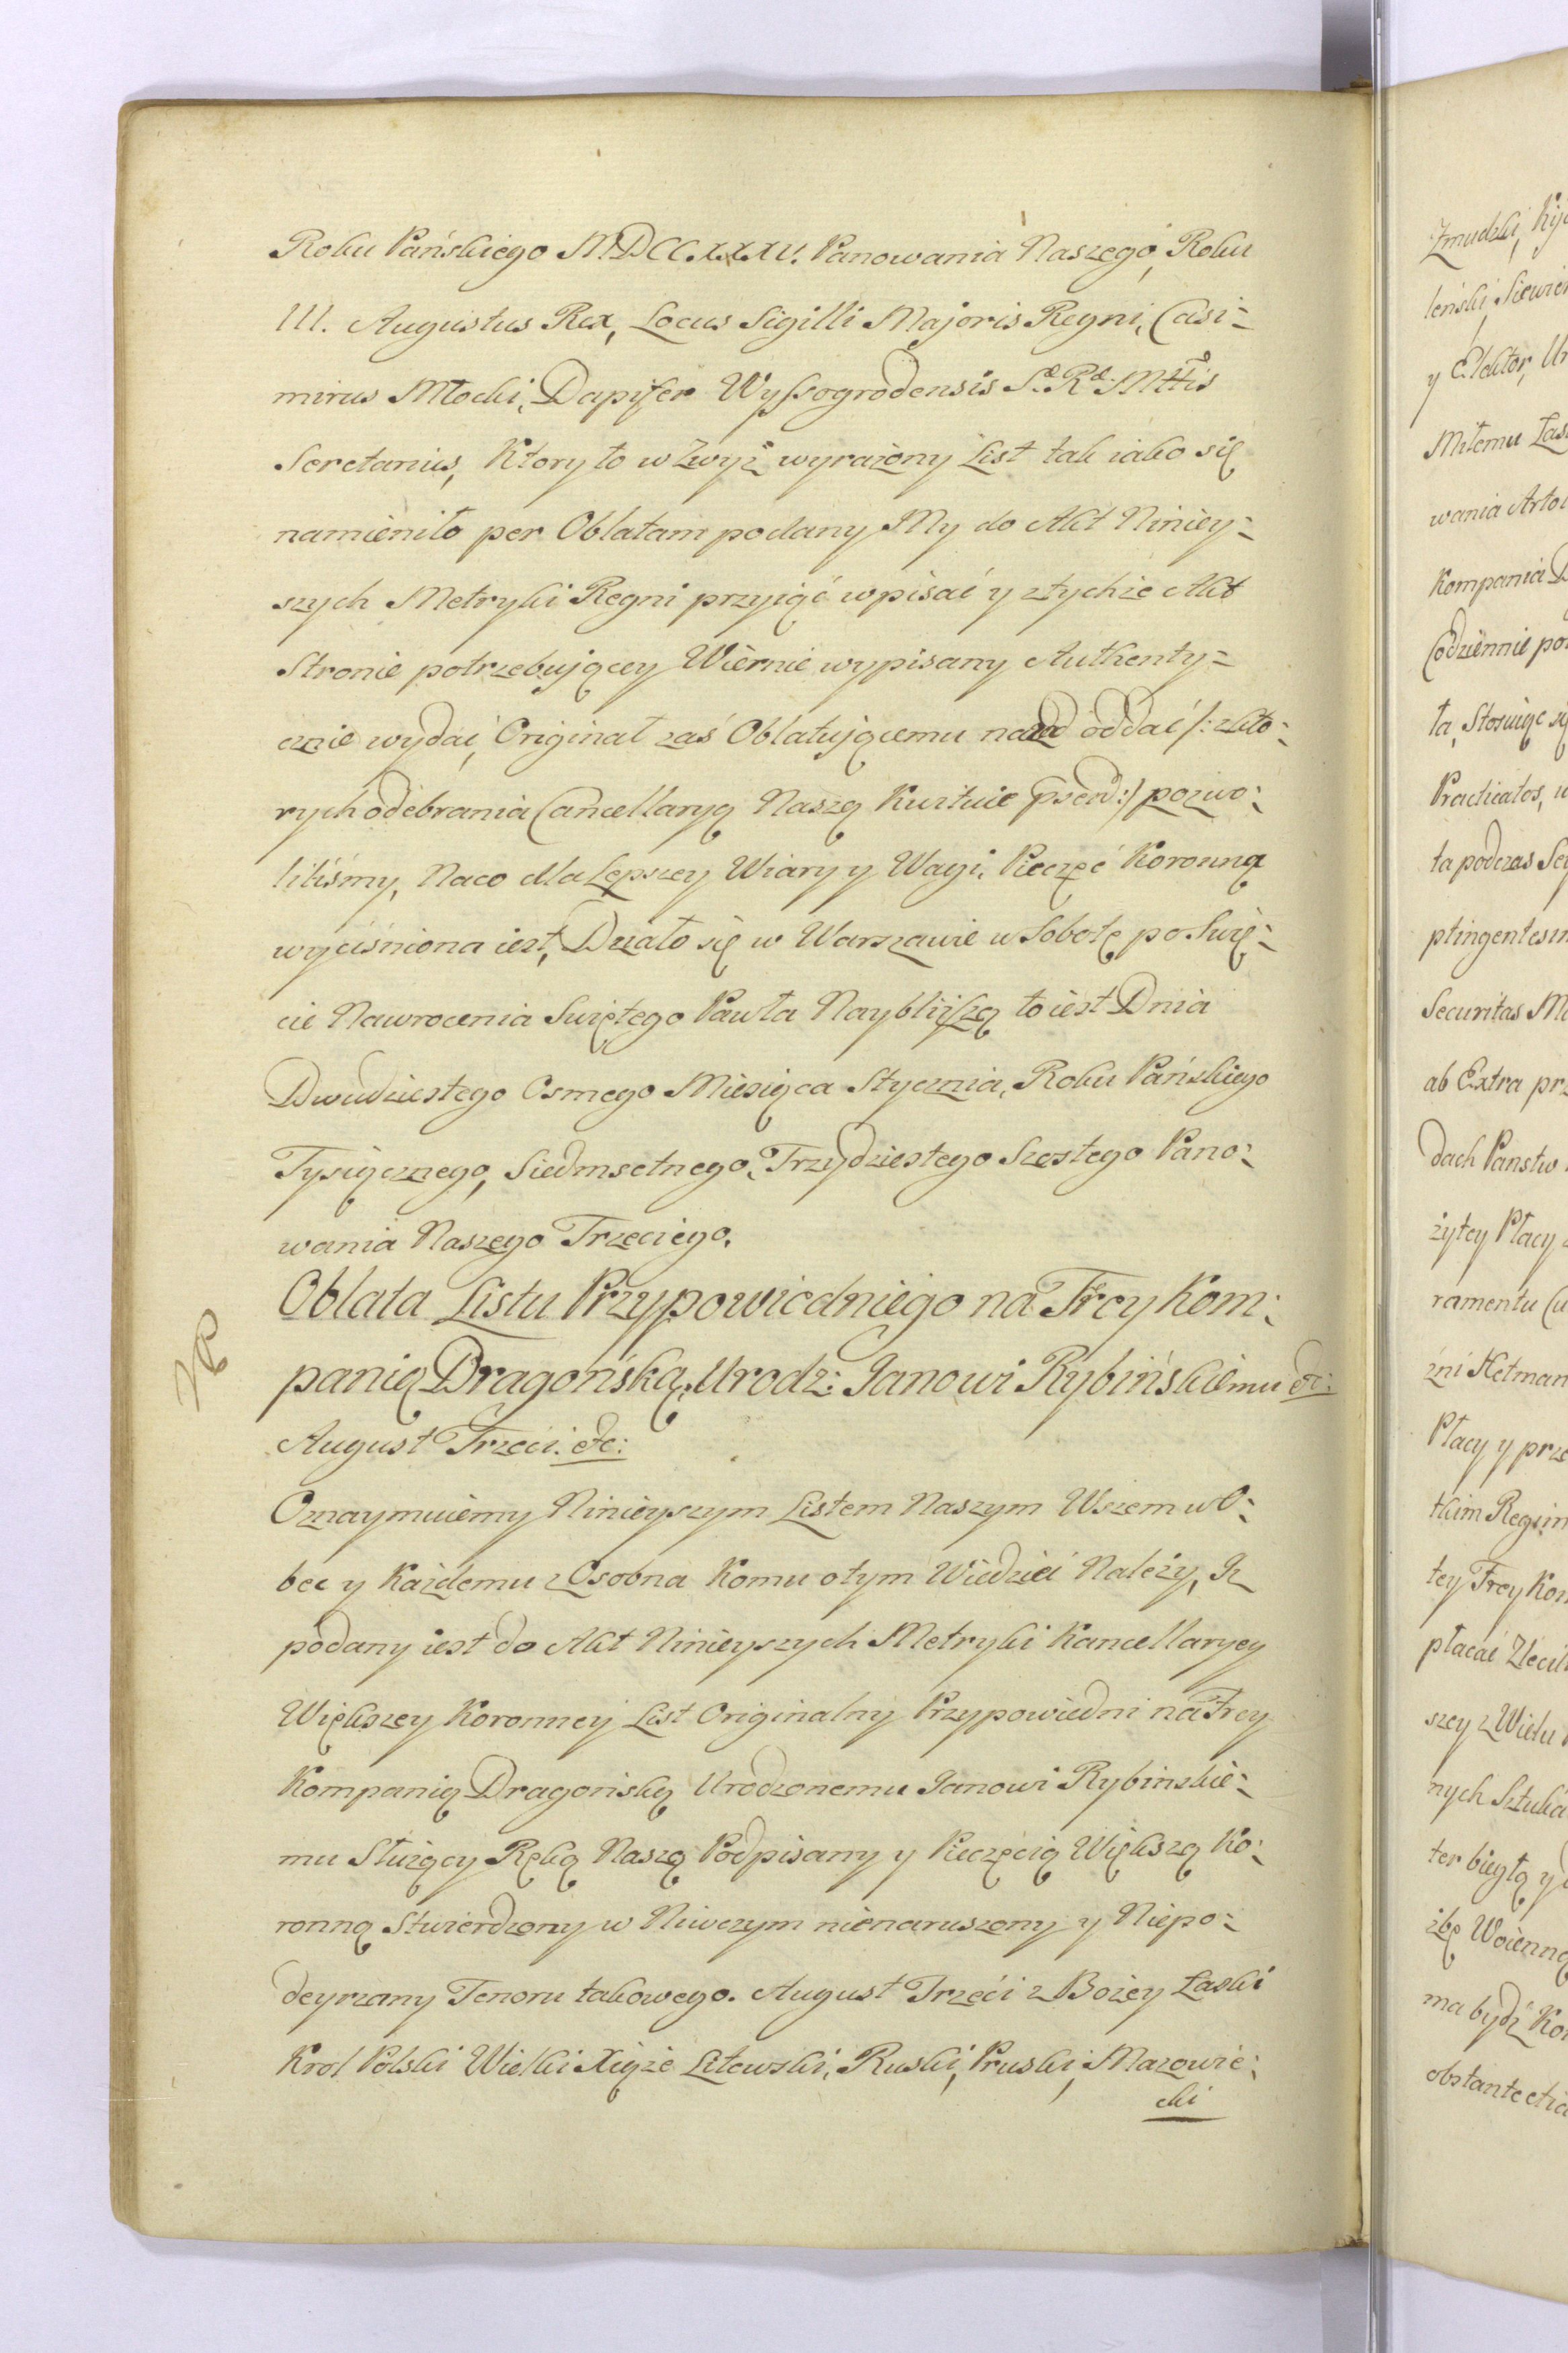 Roku Pańskiego MDCC.XXXV. Panowania Naszego, Roku
III. Augustus Rex, Locus Sigilli Majoris Regni, Casi=
mirus Młocki, Dapifer Wyssogrodensis S.R.Mttis
Secretarius, Ktory to w Zwyż wyrażony List tak iako się
namieniło per Oblatam podany My do Akt Niniey=
szych Metryki Regni przyiąć wpisać y ztychże Akt
Stronie potrzebującey Wiernie wypisany Authenty=
cznie wydać, Originał zaś Oblatującemu nazad oddać /: z kto=
rych odebrania Cancellaryą Naszą Kwituie psend:/ pozwo=
liliśmy, Naco dla Lepszey Wiary y Wagi, Pieczęć Koronna
wyciśniona iest, Działo się w Warszawie w Sobotę po Swię=
cie Nawrocenia Swiętego Pawła Nayblisszą to iest Dnia
Dwudziestego Osmego Miesiąca Stycznia, Roku Pańskiego
Tysiącznego, Siedmsetnego, Trzydziestego Szostego Pano=
wania Naszego Trzeciego.
Oblata Listu Przypowiedniego na Frey Kom=
panią Dragońską, Urodz: Janowi Rybińskiemu etc:
August Trzeci: etc:
Oznaymuiemy Ninieyszym Listem Naszym Wszem w O=
bec y Każdemu z Osobna Komu o tym Wiedzieć Należy, Iż
podany iest do Akt Ninieyszych Metryki Kancellaryey
Większey Koronney List Originalny Przypowiedni na Frey
Kompanią Dragońską Urodzonemu Janowi Rybinskie=
mu Służący Ręką Naszą Podpisany y Pieczęcią Większą Ko=
ronną Stwierdzony w Niwczym nienaruszony y Niepo=
deyrzany Tenoru takowego. August Trzeci z Bożey Łaski
Krol Polski Wielki Xiąże Litewski, Ruski, Pruski, Mazowie=
cki
Zmudzki, Kij
leński, Siewie
y Elektor, Ur
Miłemu Łas
wania Arto
Kompania D
Codziennie po
ta, Stosuiąc s
Practicatos, w
ta podczas Se
ptingentesi
Securitas Ma
ab Extra prz
dach Panstw
żytey Płacy
ramentu Cu
źni Hetman
Płacy y prze
tkim Regim
tey Frey Kom
płacać Zlecil
szey z Wielu
nych Sztuka
ter biegłą y
żbę Woienną
ma bydź Ko
obstante etia